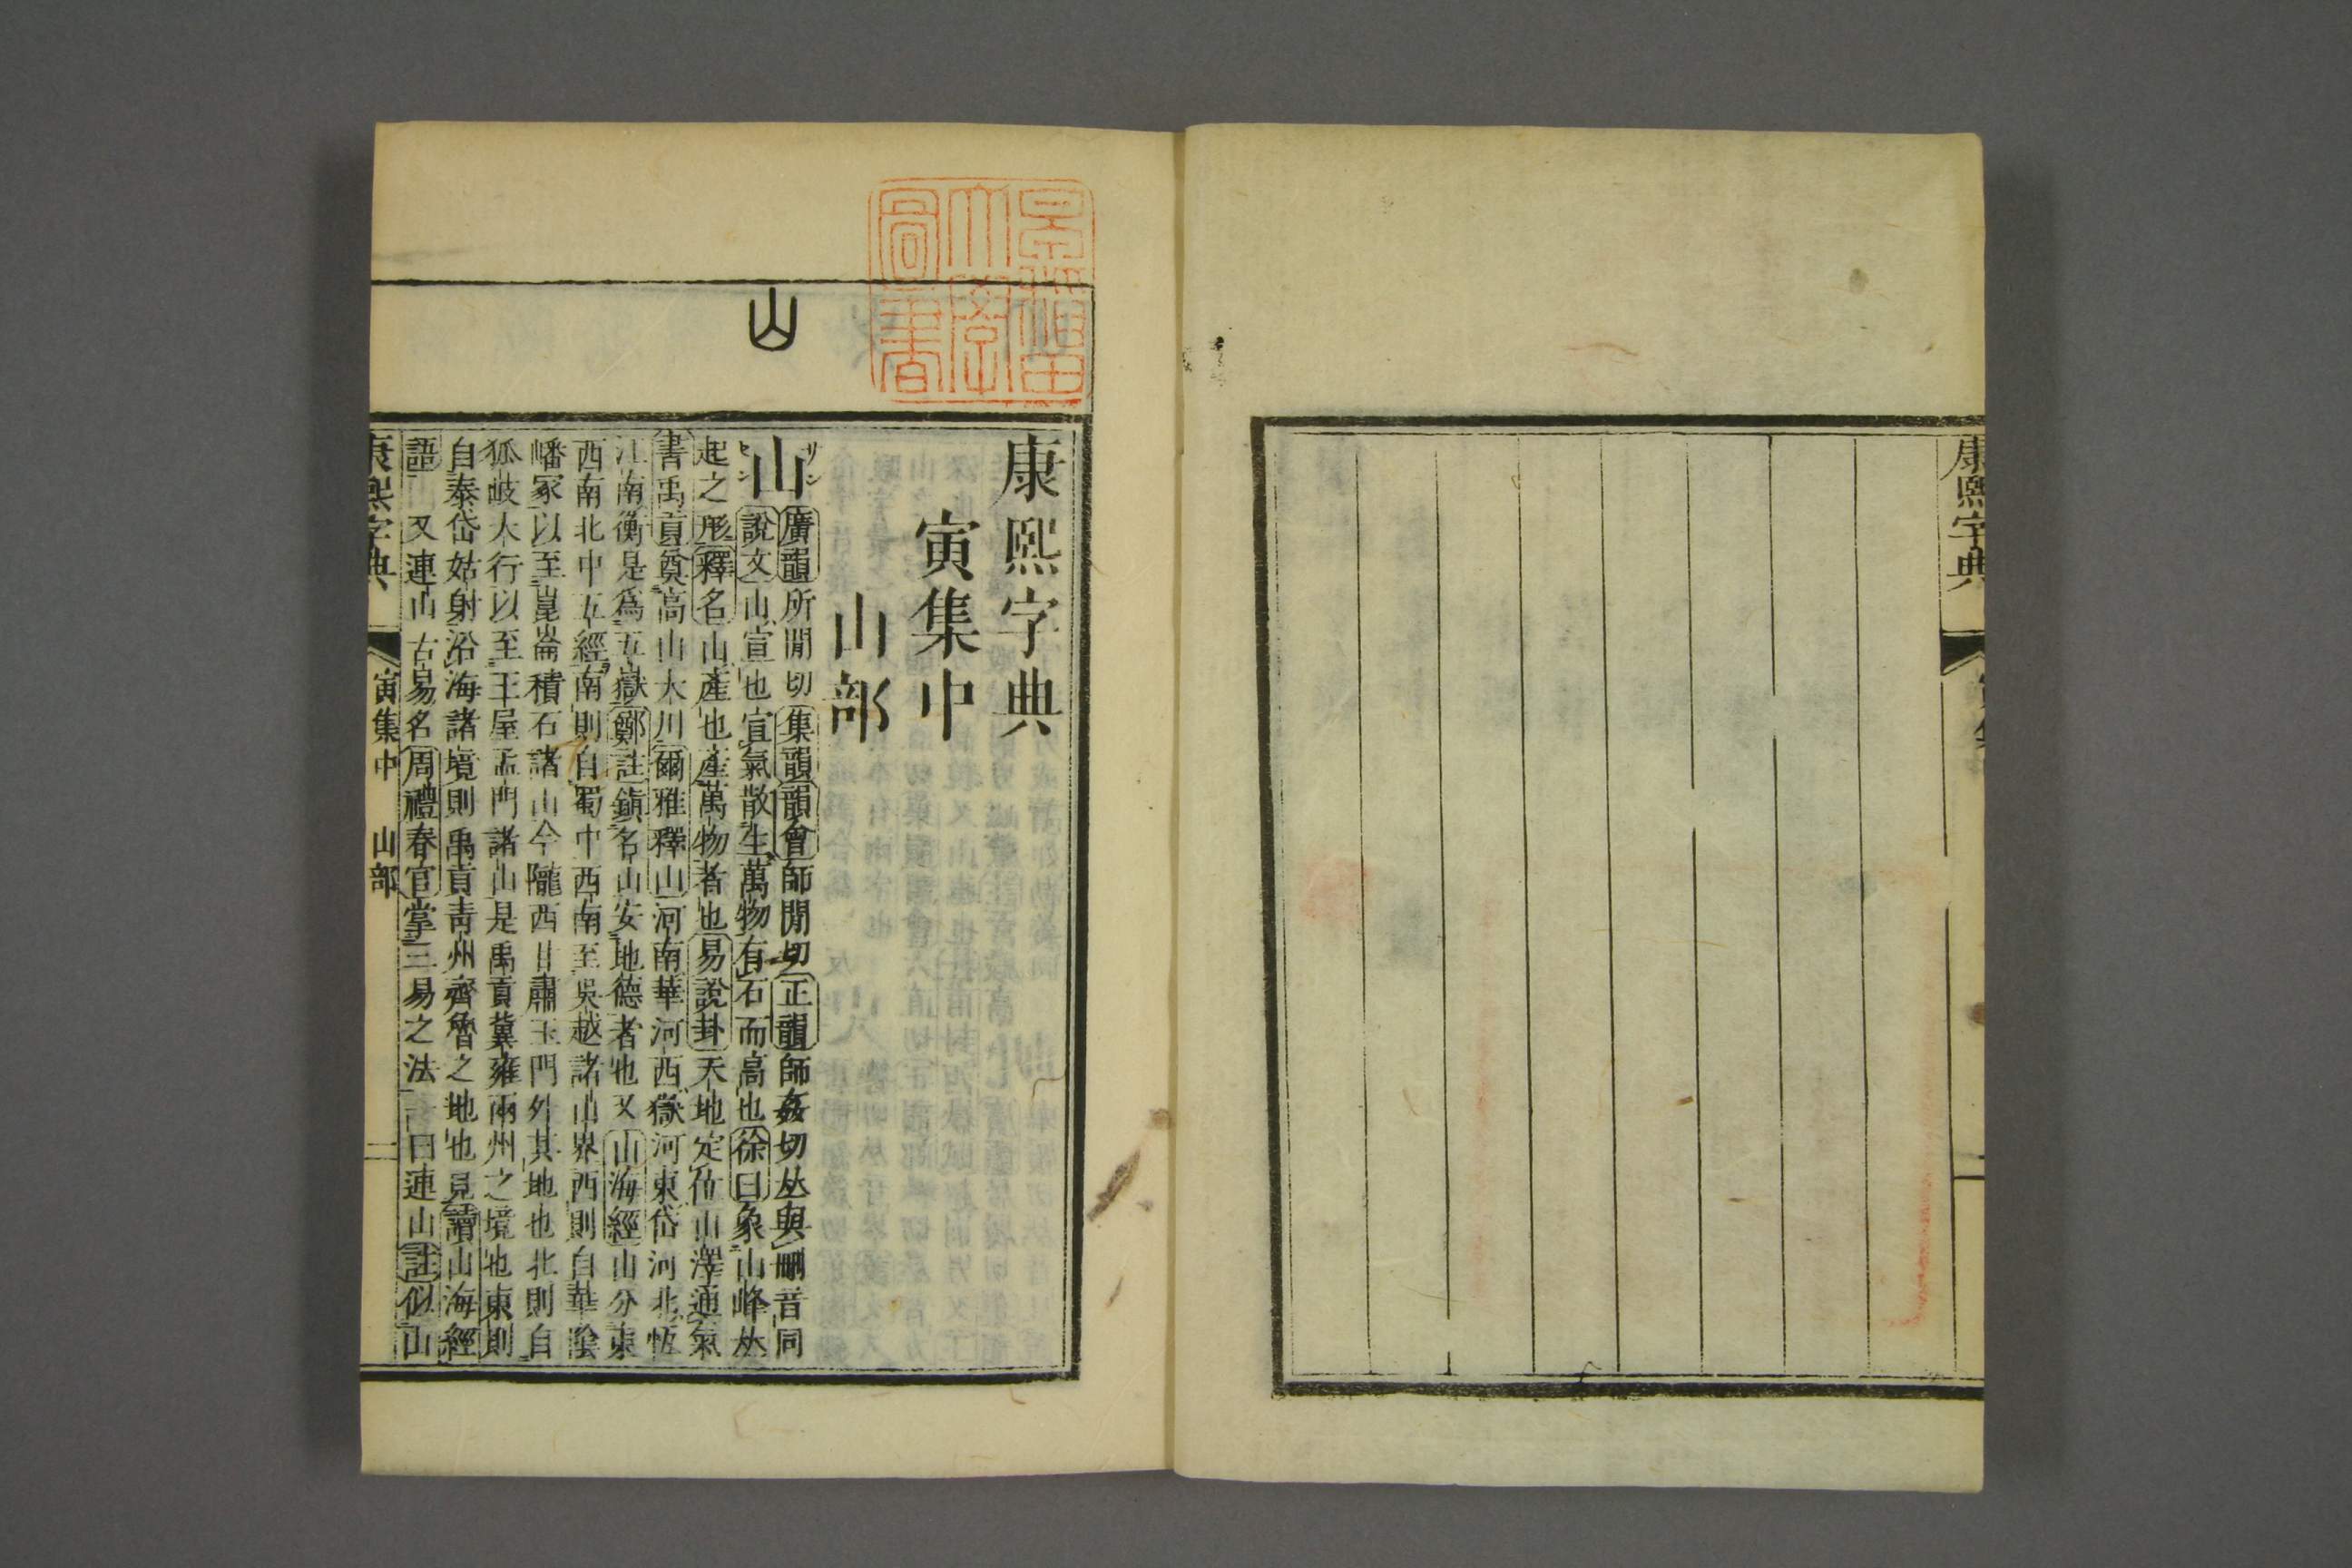 康熙字典
康熙字典
寅集中
山部
山
山
サン
セン
廣韻所閒切集韻韻會師閒切正韻師姦切𠀤與刪音同
說文山宣也宣氣散生萬物有石而高也徐曰象山峰𠀤
起之形釋名山產也產萬物者也易說卦天地定位山澤通氣
書禹貢奠高山大川爾雅釋山河南華河西嶽河東岱河北恆
江南衡是爲五嶽鄭註鎮名山安地德者也又山海經山分東
西南北中五經南則自蜀中西南至吳越諸山界西則自華陰
嶓冢以至崑崙積石諸山今隴西甘肅玉門外其地也北則自
狐岐太行以至王屋孟門諸山是禹貢冀雍兩州之境也東則
自泰岱姑射沿海諸境則禹貢靑州齊魯之地也見讀山海經
語　又連山古易名周禮春官掌三易之法一曰連山註似山
康熙字典　寅集中　山部　一